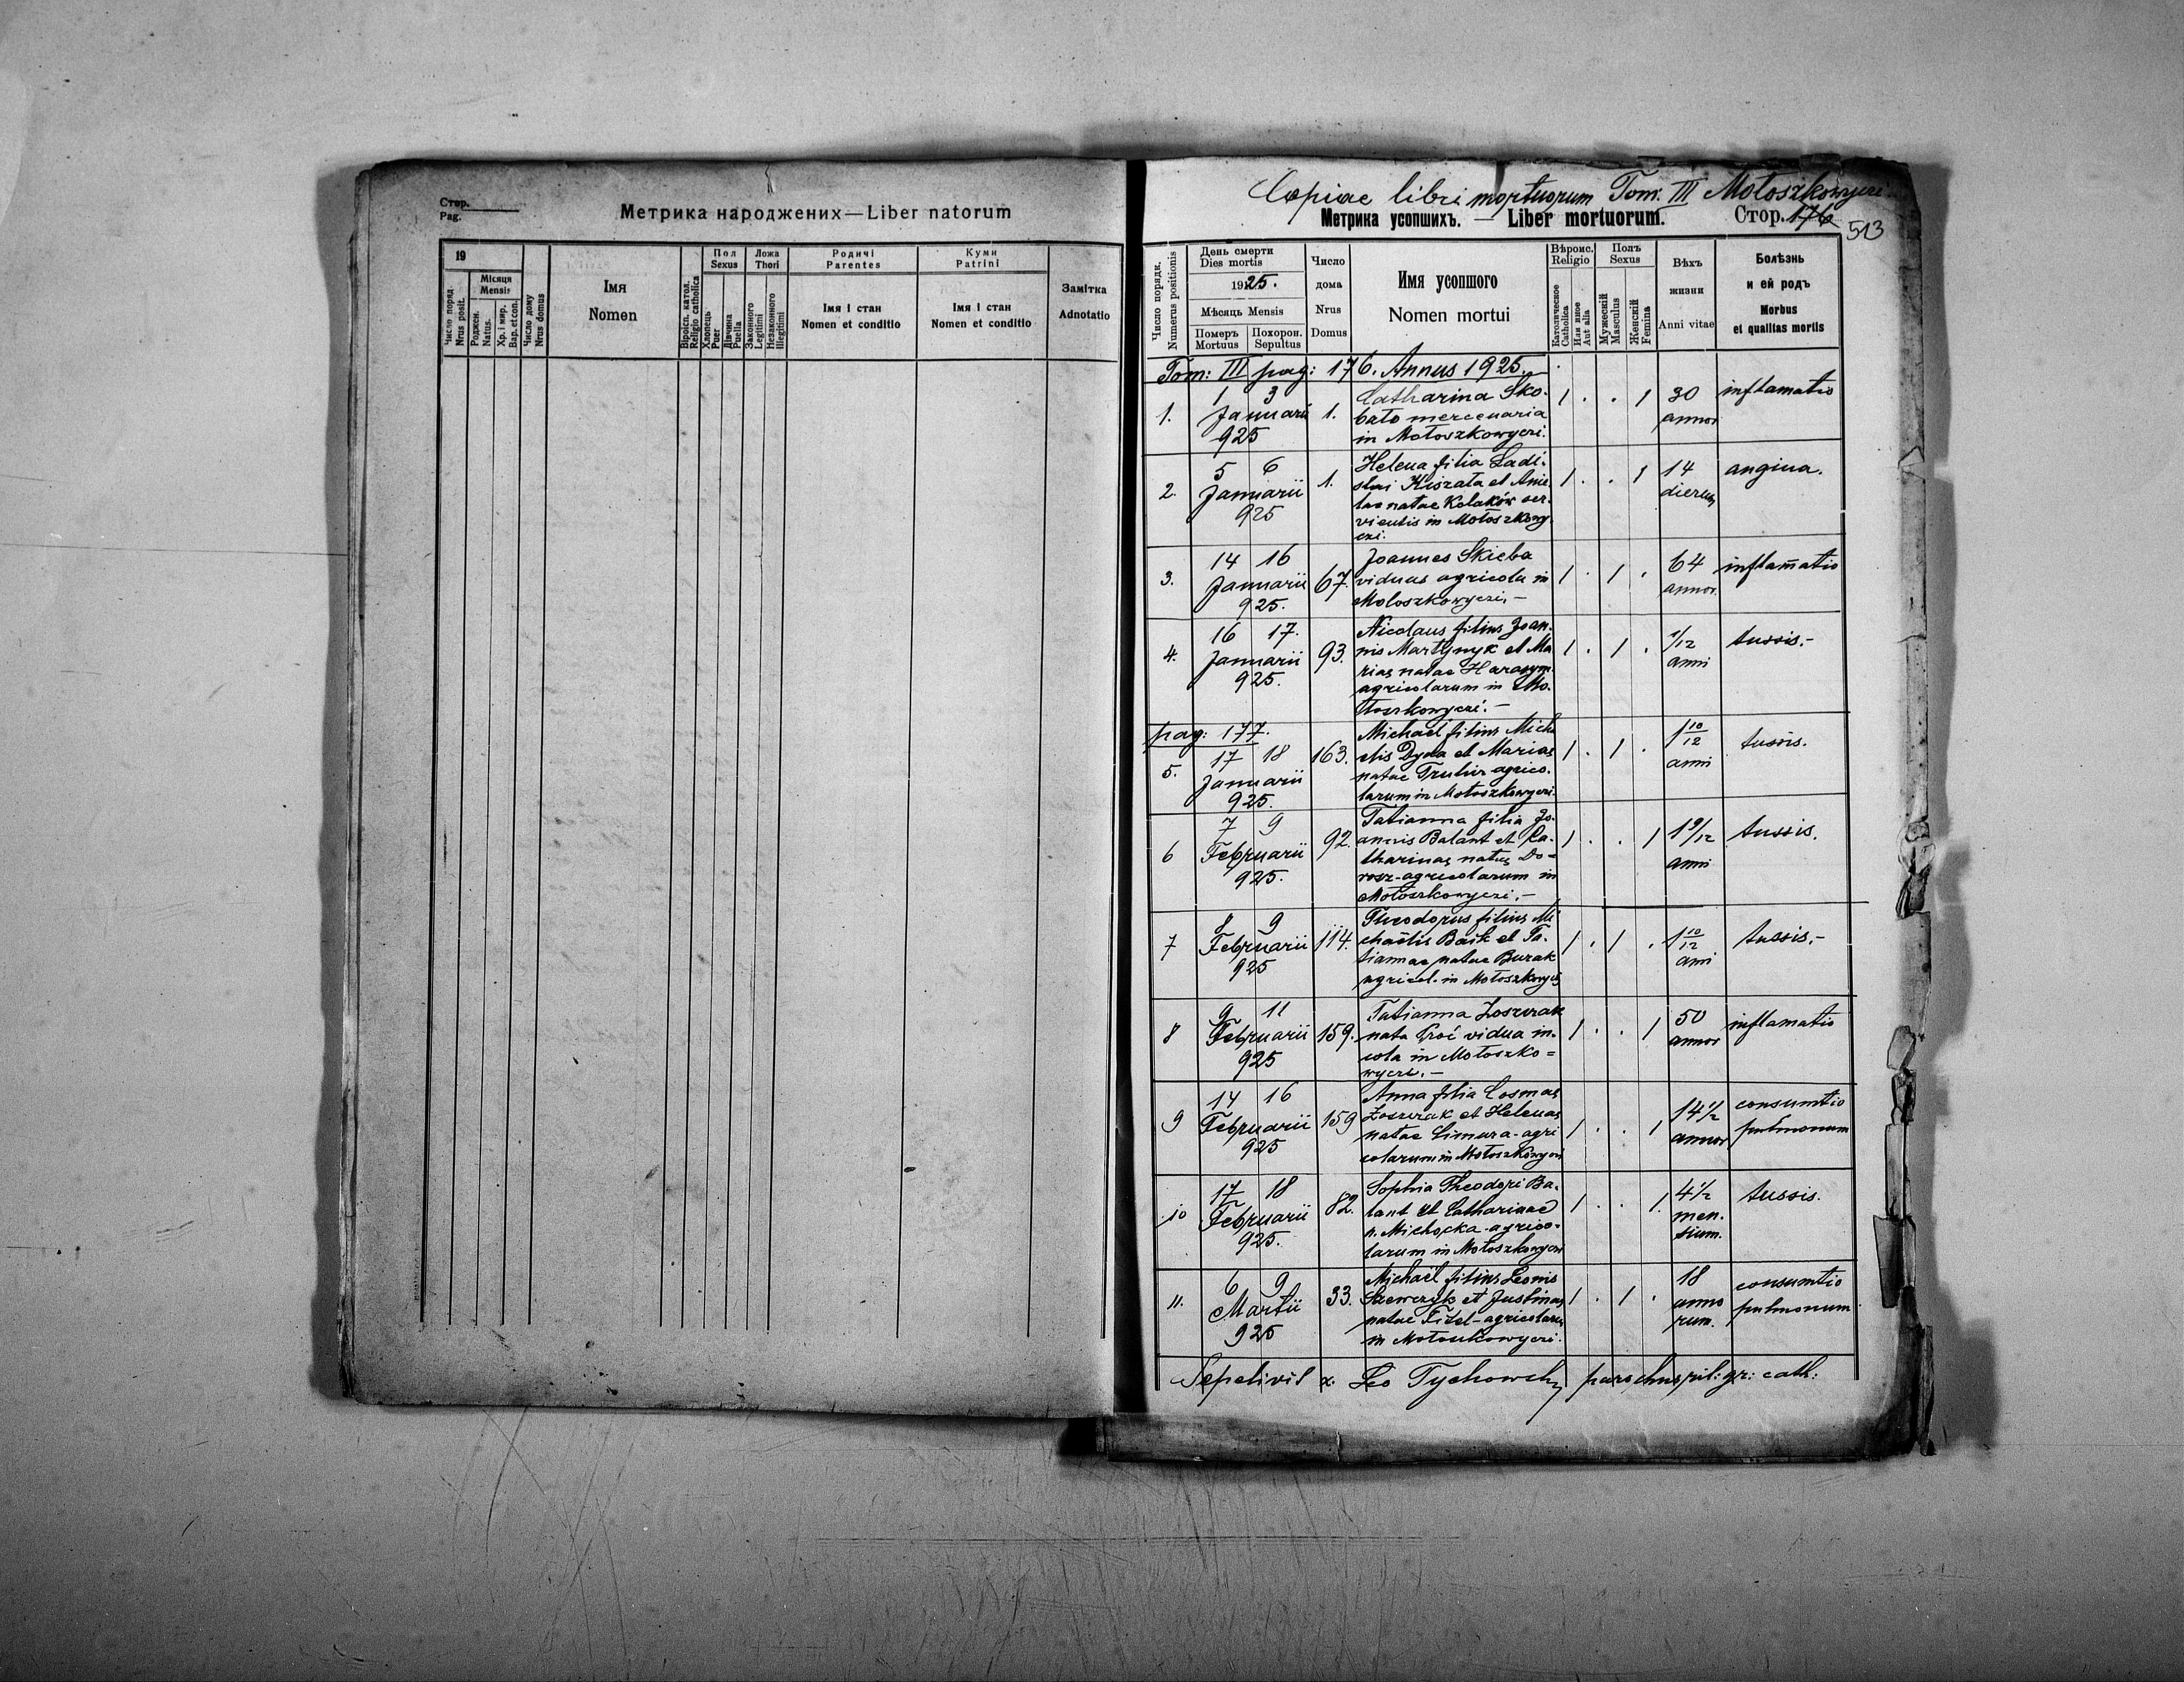 Стор.
Pag.
Метрика народжених—Liber natorum
19
Число поряд.
Nrus posit.
Місяця
Mensis
Роджен.
Natus.
Хр. і мир.
Bap. et con.
Число дому
Nrus domus
Імя
Nomen
Віроісп. катол.
Religio catholica
Пол
Sexus
Хлопець
Puer
Дівчина
Puella
Ложа
Thori
Законного
Legitimi
Незаконного
Illegitimi
Родичі
Parentes
Імя і стан
Nomen et conditio
Куми
Patrini
Імя і стан
Nomen et conditio
Замітка
Adnotatio
Copiae libri mortuorum Tom. III Mołoszkowyczi
Метрика усопшихъ. — Liber mortuorum.
Стор. 176
513
Число порядк.
Numerus positionis
День смерти
Dies mortis
1925.
Мѣсяць Mensis
Померъ
Mortuus
Похорон.
Sepultus
Число
дома
Nrus
Domus
Имя усопшого
Nomen mortui
Вѣроис.
Religio
Католическое
Catholica
Или иное
Aut alia
Полъ
Sexus
Мужескій
Masculus
Женскій
Femina
Вѣхъ
жизни
Anni vitae
Болѣзнь
и ей родъ
Morbus
et qualitas mortis
Tom: III pag: 176. Annus 1925.
1.
1 3
Januarii
925
1.
Catharina Sko-
bato mercenaria
in Mołoszkowyczi.
1 . . 1
30
annor
inflamatio
2.
5 6
Januarii
925
1.
Helena filia Ladi-
slai Kiszała et Anie
lae natae Kołaków ser-
vientis in Mołoszkowy
czi.
1 . . 1
14
dierum
angina.
3.
14 16
Januarii
925.
67.
Joannes Skieba
viduus agricola in
Mołoszkowyczi. –
1 . 1 .
64
annor.
inflam̄atio
4.
16 17.
Januarii
925.
93.
Nicolaus filius Joan-
nis Martynyk et Ma
riae natae Harasym
agricolarum in Mo-
łoszkowyczi. –
1 . 1 .
/12
anni
tussis. –
pag: 177.
5.
17 18
Januarii
925.
163.
Michael filius Micha
elis Dyda et Mariae
natae agrico-
larum in Mołoszkowyczi.
1 . 1 .
1 10/12
anni
tussis.
6
7 9
Februarii
925.
92.
Tatianna filia Jo-
annis Bałant et Ca-
tharinae natae Do-
rosz-agricolarum in
Mołoszkowyczi. –
1 . . 1
1 9/12
anni
tussis.
7
8 9
Februarii
925
114.
Theodorus filius Mi
chaëlis Baik et Ta-
tiannae natae Burak
agricol. in Mołoszkowycz
1 . 1 .
1 10/12
anni
tussis. –
8
9 11
Februarii
925
159.
Tatianna Łoszczak
nata vidua in-
cola in Mołoszko=
wyczi. –
1 . . 1
50
annor
inflamatio
9
14 16
Februarii
925
159
Anna filia Cosmae
Łoszczak et Helenae
natae agri
colarum in Mołoszkowyczi
1 . . 1
14½
annor
consumtio
pulmonum
10
17 18
Februarii
925.
82.
Sophia Theodori Ba-
łant et Catharinae
n. Michocka-agrico-
larum in Mołoszkowyczi
1 . . 1
4½
men-
sium.
tussis.
11.
6 9
Martii
925
33.
Michaël filius Leonis
Szewczyk et Justinae
natae agricolarum
in Mołoszkowyczi.
1 . 1 .
18
anno
rum.
consumtio
pulmonum
Sepelivit x. Leo Tychowskyj parochus rit: gr: cath: